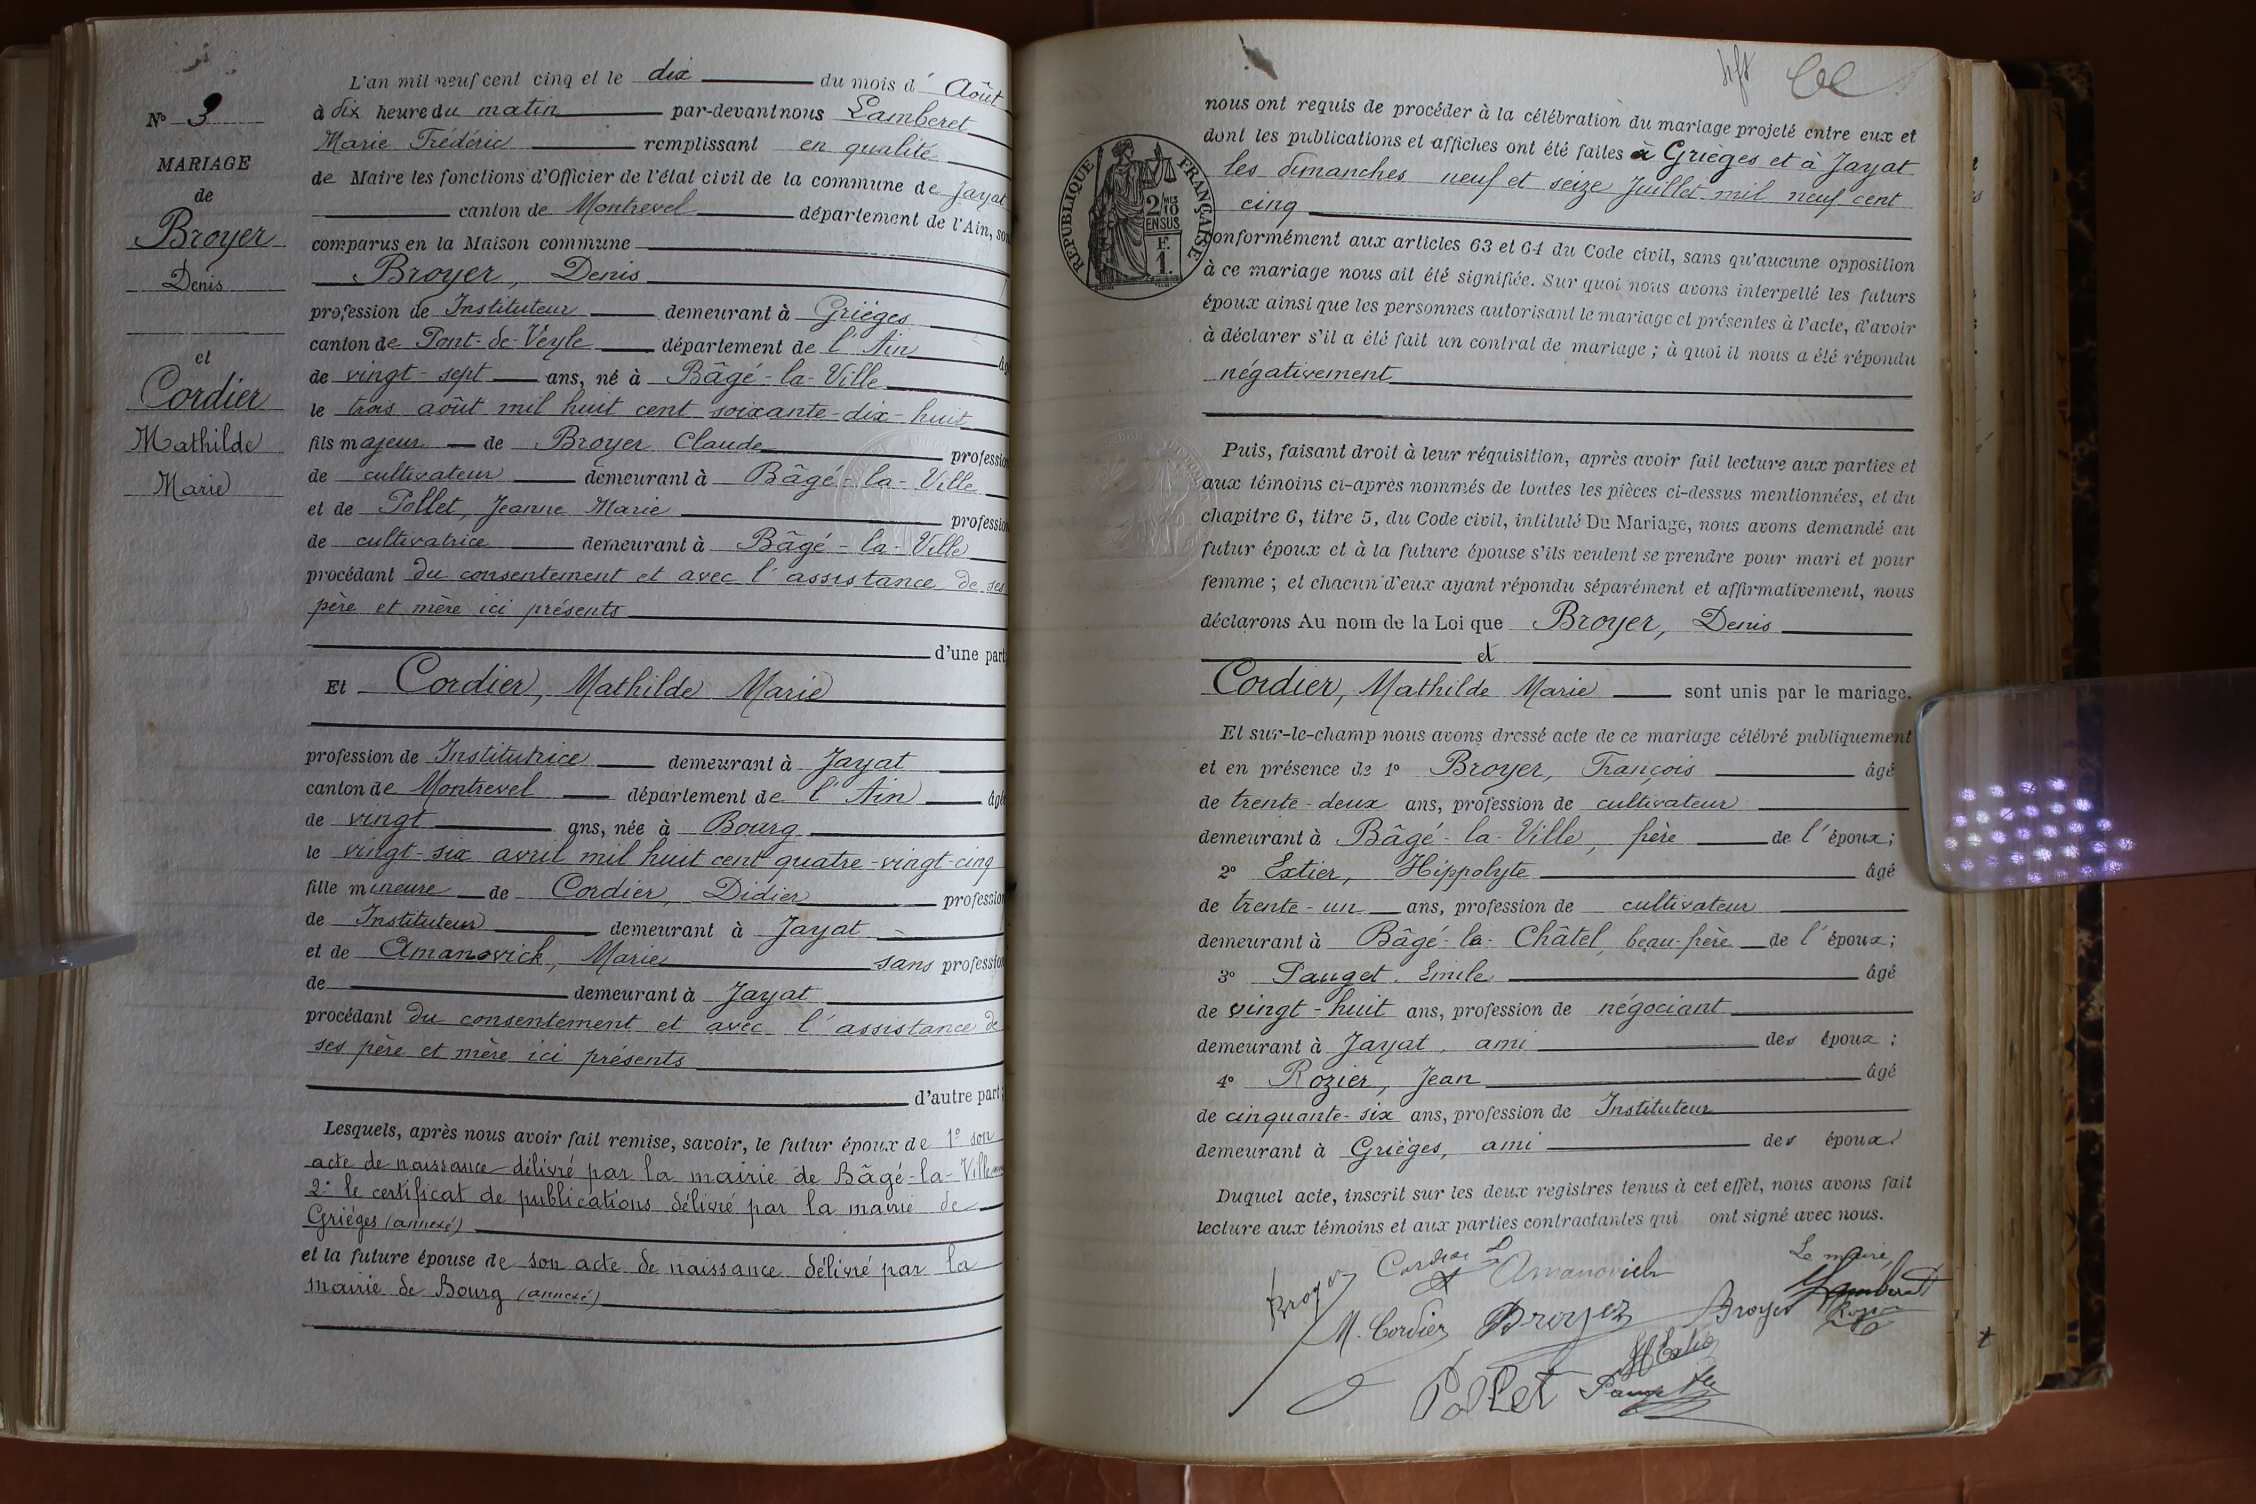 L'an mil neuf cent cinq et le dix du mois d' Août
Nº 3
à dix heure du matin par-devant nous Lamberet
Marie Frédéric remplissant en qualité
MARIAGE
de Maire les fonctions d'Officier de l'état civil de la commune de Jayat
de
canton de Montrevel département de l'Ain, son
Broyer
comparus en la Maison commune
Denis
Broyer, Denis
profession de Instituteur demeurant à Grièges
et
canton de Pont-de-Veyle département de l'Ain âgé
Cordier
de vingt-sept ans, né à Bâgé-la-Ville
le trois août mil huit cent soixante-dix-huit
Mathilde
fils majeur de Broyer Claude profession
Marie
de cultivateur demeurant à Bâgé-la-Ville
et de Pollet, Jeanne Marie profession
de cultivatrice demeurant à Bâgé-la-Ville
procédant du consentement et avec l'assistance de ses
père et mère ici présents
d'une part
Et Cordier, Mathilde Marie
profession de Institutrice demeurant à Jayat
canton de Montrevel département de l'Ain âgé
de vingt ans, née à Bourg
le vingt-six avril mil huit cent quatre-vingt-cinq
fille mineure de Cordier, Didier profession
de Instituteur demeurant à Jayat
et de Amanovich, Marie sans profession
de demeurant à Jayat
procédant du consentement et avec l'assistance de
ses père et mère ici présents
d'autre part ;
Lesquels, après nous avoir fait remise, savoir, le futur époux de 1º son
acte de naissance délivré par la mairie de Bâgé-la-Ville
2º le certificat de publications délivré par la mairie de
Grièges (annexé)
et la future épouse de son acte de naissance délivré par la
mairie de Bourg (annexé)
nous ont requis de procéder à la célébration du mariage projeté entre eux et
dont les publications et affiches ont été faites à Grièges et à Jayat
les dimanches neuf et seize Juillet mil neuf cent
cinq
REPUBLIQUE FRANÇAISE
2/10
EN SUS
F.
1.
conformément aux articles 63 et 64 du Code civil, sans qu'aucune opposition
à ce mariage nous ait été signifiée. Sur quoi nous avons interpellé les futurs
époux ainsi que les personnes autorisant le mariage et présentes à l'acte, d'avoir
à déclarer s'il a été fait un contrat de mariage ; à quoi il nous a été répondu
négativement
Puis, faisant droit à leur réquisition, après avoir fait lecture aux parties et
aux témoins ci-après nommés de toutes les pièces ci-dessus mentionnées, et du
chapitre 6, titre 5, du Code civil, intitulé Du Mariage, nous avons demandé au
futur époux et à la future épouse s'ils veulent se prendre pour mari et pour
femme ; et chacun d'eux ayant répondu séparément et affirmativement, nous
déclarons Au nom de la Loi que Broyer, Denis
et
Cordier, Mathilde Marie sont unis par le mariage.
Et sur-le-champ nous avons dressé acte de ce mariage célébré publiquement
et en présence de 1º Broyer, François âgé
de trente-deux ans, profession de cultivateur
demeurant à Bâgé-la-Ville, frère de l'époux ;
2º Extier, Hippolyte âgé
de trente-un ans, profession de cultivateur
demeurant à Bâgé-le-Châtel, beau-frère de l'époux ;
3º Pauget, Emile âgé
de vingt-huit ans, profession de négociant
demeurant à Jayat, ami des époux ;
4º Rozier, Jean âgé
de cinquante-six ans, profession de Instituteur
demeurant à Grièges, ami des époux.
Duquel acte, inscrit sur les deux registres tenus à cet effet, nous avons fait
lecture aux témoins et aux parties contractantes qui ont signé avec nous.
Le maire,
Broyer Cordier D Amanovich Lamberet
M. Cordier Broyer Broyer Rozier
H Extier
Pollet Pauget